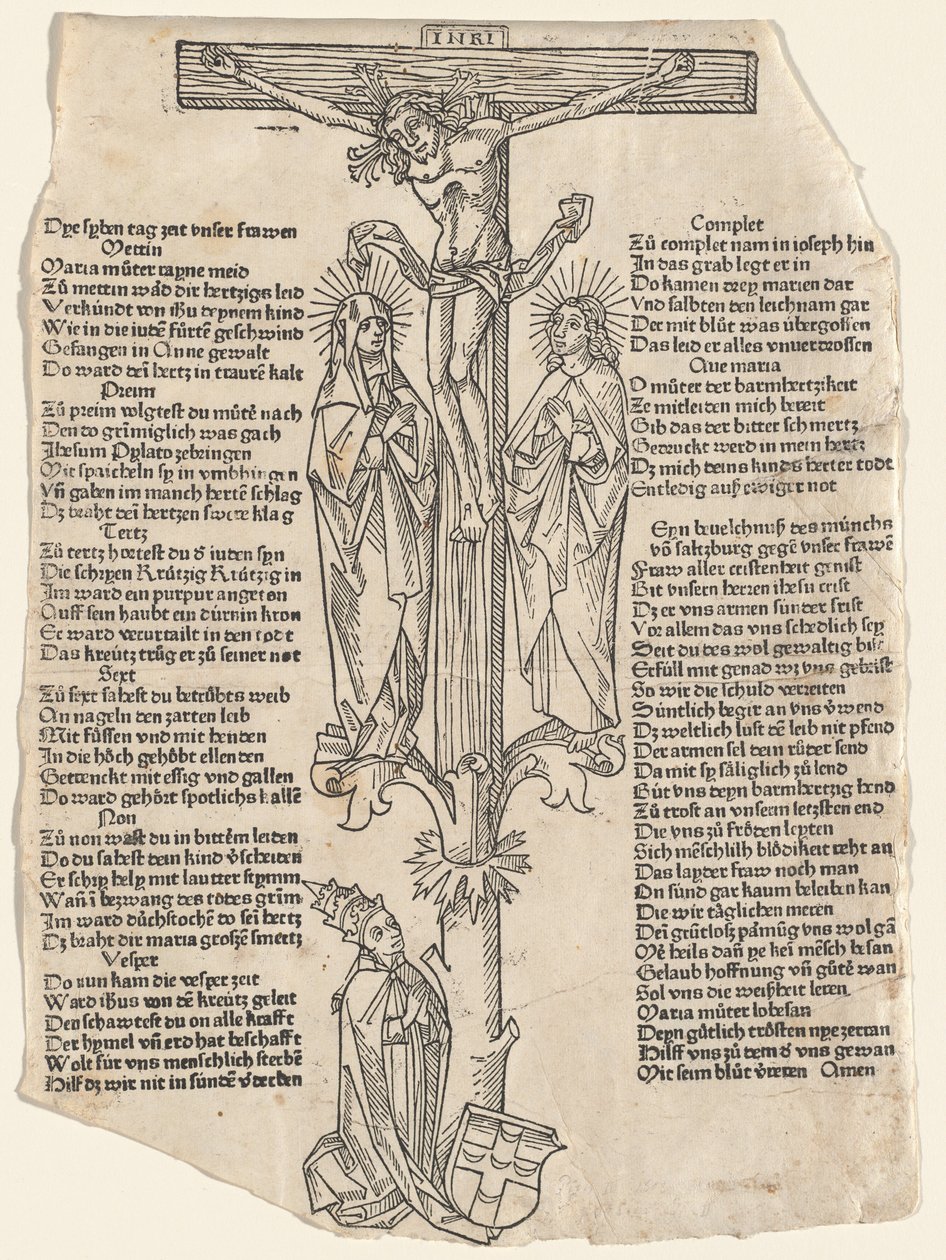 INRI
Dye syben tag zeit vnser frawen
Mettin
Maria můter rayne meid
Zů mettin wād dir hertzigs leid
Verkündt von ihu deynem kind
Wie in die iudē fürtē geschwind
Gefangen in Anne gewalt
Do ward deī hertz in traurē kalt
Preim
Zů preim volgtest du můtē nach
Den do grīmiglich was gach
Ihesum Pylato zebringen
Mit spaicheln sy in vmbhingen
Vn̄ gaben im manch hertē schlag
Dz braht deī hertzen swere klag
Tertz
Zů tertz hortest du d iuden syn
Die schryen Krützig Krützig in
Im ward ein purpur angeton
Auff sein haubt ein dürnin kron
Er ward verurtailt in den todt
Das kreütz trůg er zů seiner not
Sext
Zů sext sahest du betrůbts weib
An nageln den zarten leib
Mit fůssen vnd mit henden
In die hôch gehôbt ellenden
Getrenckt mit essig vnd gallen
Do ward gehôrt spotlichs kallē
Non
Zů non wast du in bittērm leiden
Do du sahest dein kind v̄scheiden
Er schry hely mit lautter stymm
Wan̄ ī bezwang des todes grīm
Im ward důchstochē do seī hertz
Dz braht dir maria grossē smertz
Vesper
Do nun kam die vesper zeit
Ward ihūs von dē kreütz geleit
Den schawtest du on alle krafft
Der hymel vn̄ erd hat beschafft
Wolt für vns menschlich sterbē
Hilf dz wir nit in sündē v̄derben
Complet
Zů complet nam in ioseph hin
In das grab legt er in
Do kamen drey marien dar
Vnd salbten den leichnam gar
Der mit blůt was übergossen
Das leid er alles vnverdrossen
Aue maria
O můter der barmhertzikeit
Ze mitleiden mich bereit
Gib das der bitter schmertz
Gedruckt werd in mein hertz
Dz mich deins kinds herter todt
Entledig auß ewiger not
Eyn beuelchnuß des münchs
vō saltzburg gegē vnser frawē
Fraw aller cristenheit genist
Bit vnsern herren ihesu crist
Dz er vns armen sunder frist
Vor allem das vns schedlich sey
Seit du des wol gewaltig bist
Erfüll mit genad wz vns gebrist
So wir die schuld verreiten
Süntlich begir an vns v̄wend
Dz weltlich lust dē leib nit pfend
Der armen sel dein růder send
Da mit sy såliglich zů lend
Büt vns deyn barmhertzig hend
Zů trost an vnserm letzsten end
Die vns zů frôden leyten
Sich mēschlilh blôdikeit reht an
Das layder fraw noch man
On sünd gar kaum beleiben kan
Die wir tåglichen meren
Deī grůtlosz pamůg vns wol gā
Mē heils dan̄ ye keī mēsch besan
Gelaub hoffnung vn̄ gůtē wan
Sol vns die weißheit leren
Maria můter lobesan
Deyn gôtlich trôsten nye zerran
Hilff vns zů dem d vns gewan
Mit seim blůt v̄reren Amen